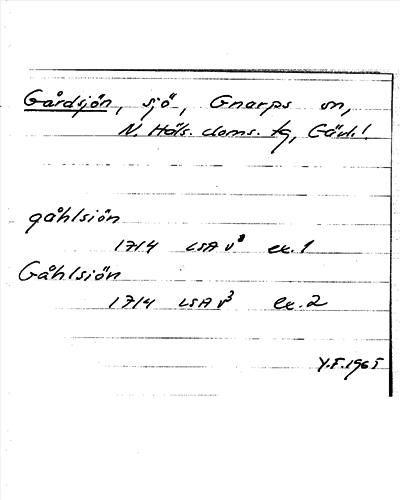 Gårdsjön, sjö, Gnarps sn,
N. Häls. doms. tg, Gävl. l.
gåhlsiön
1714 LSA V³ ex. 1
Gåhlsiön
1714 LSA V³ ex. 2
Y.F. 1965